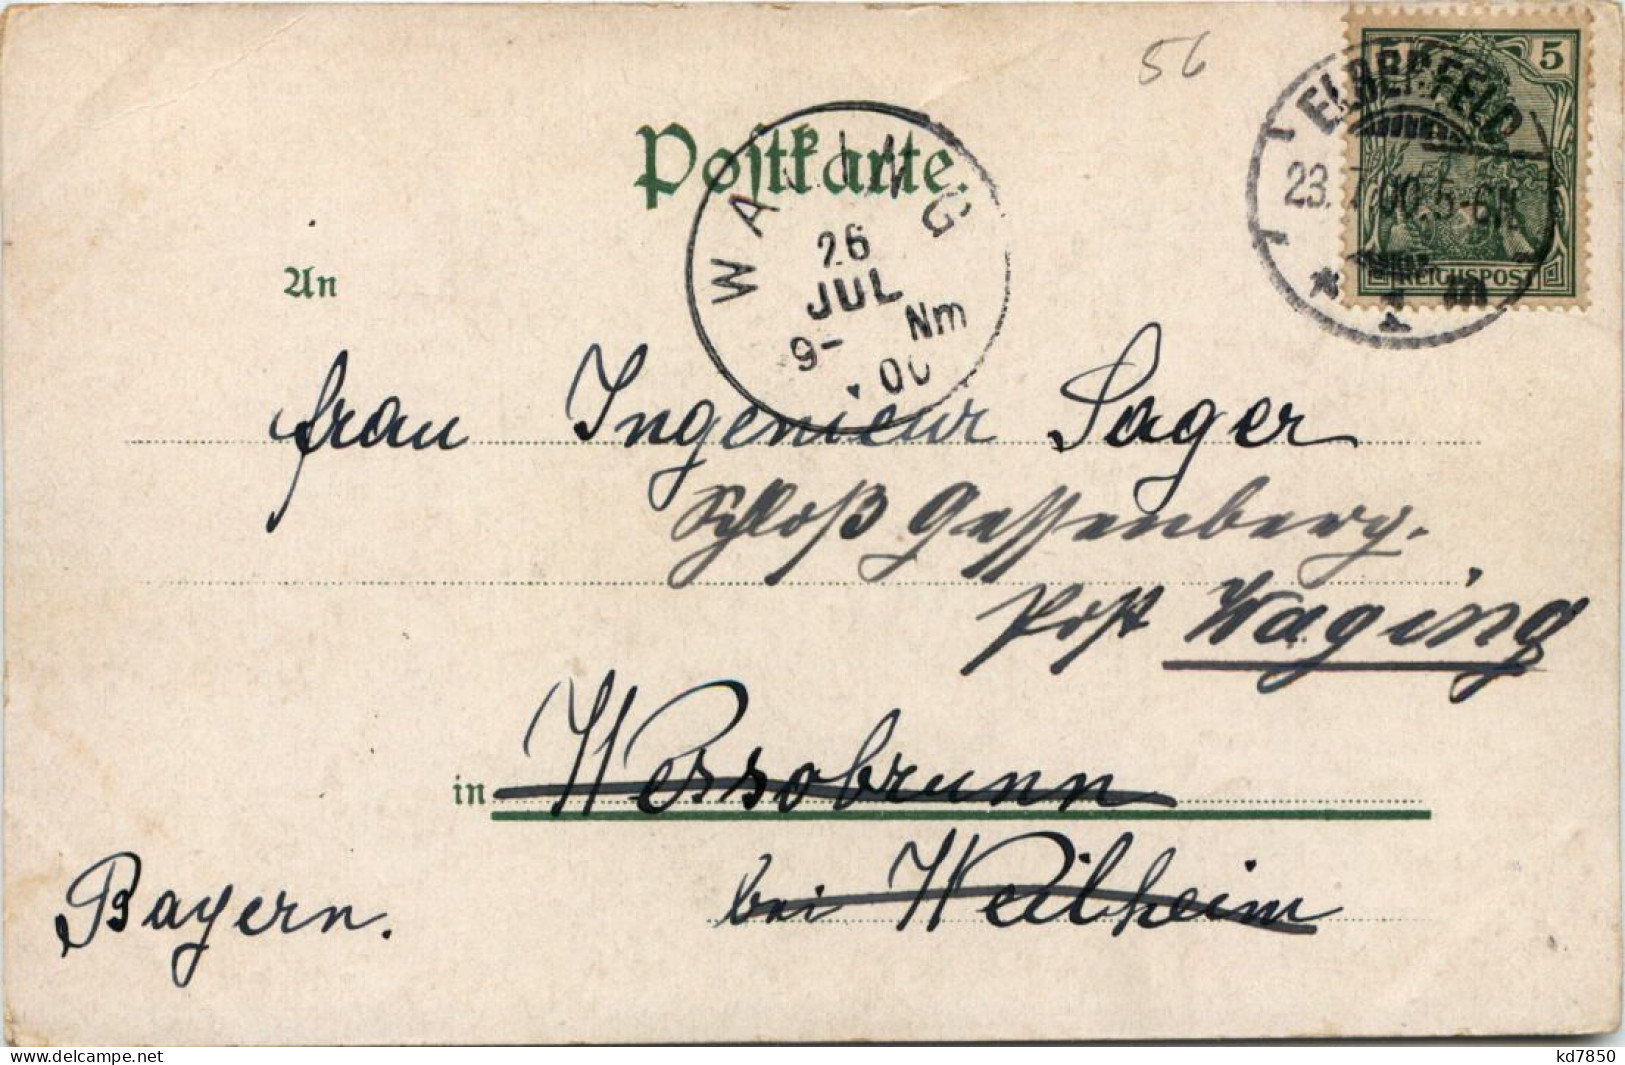 56
5
REICHSPOST
ELBERFELD
23.7.00.5-6N.
* 1 m
Postkarte.
WAGING
26
JUL
9- Nm
.00
An
Frau Ingenieur Sager
Schloß Gessenberg.
Post Waging
in Wessobrunn
bei Weilheim
Bayern.
www.delcampe.net
kd7850